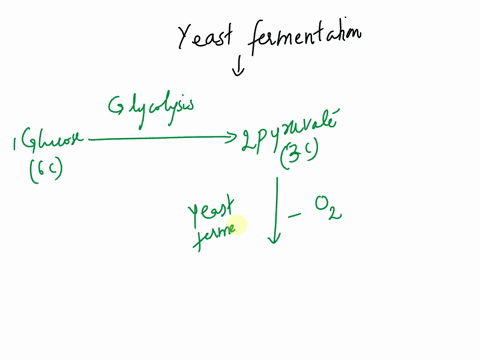 Yeast fermentation
Glycolysis
1 Glucose
(6C)
2 Pyruvate
(3C)
Yeast
ferme
– O2